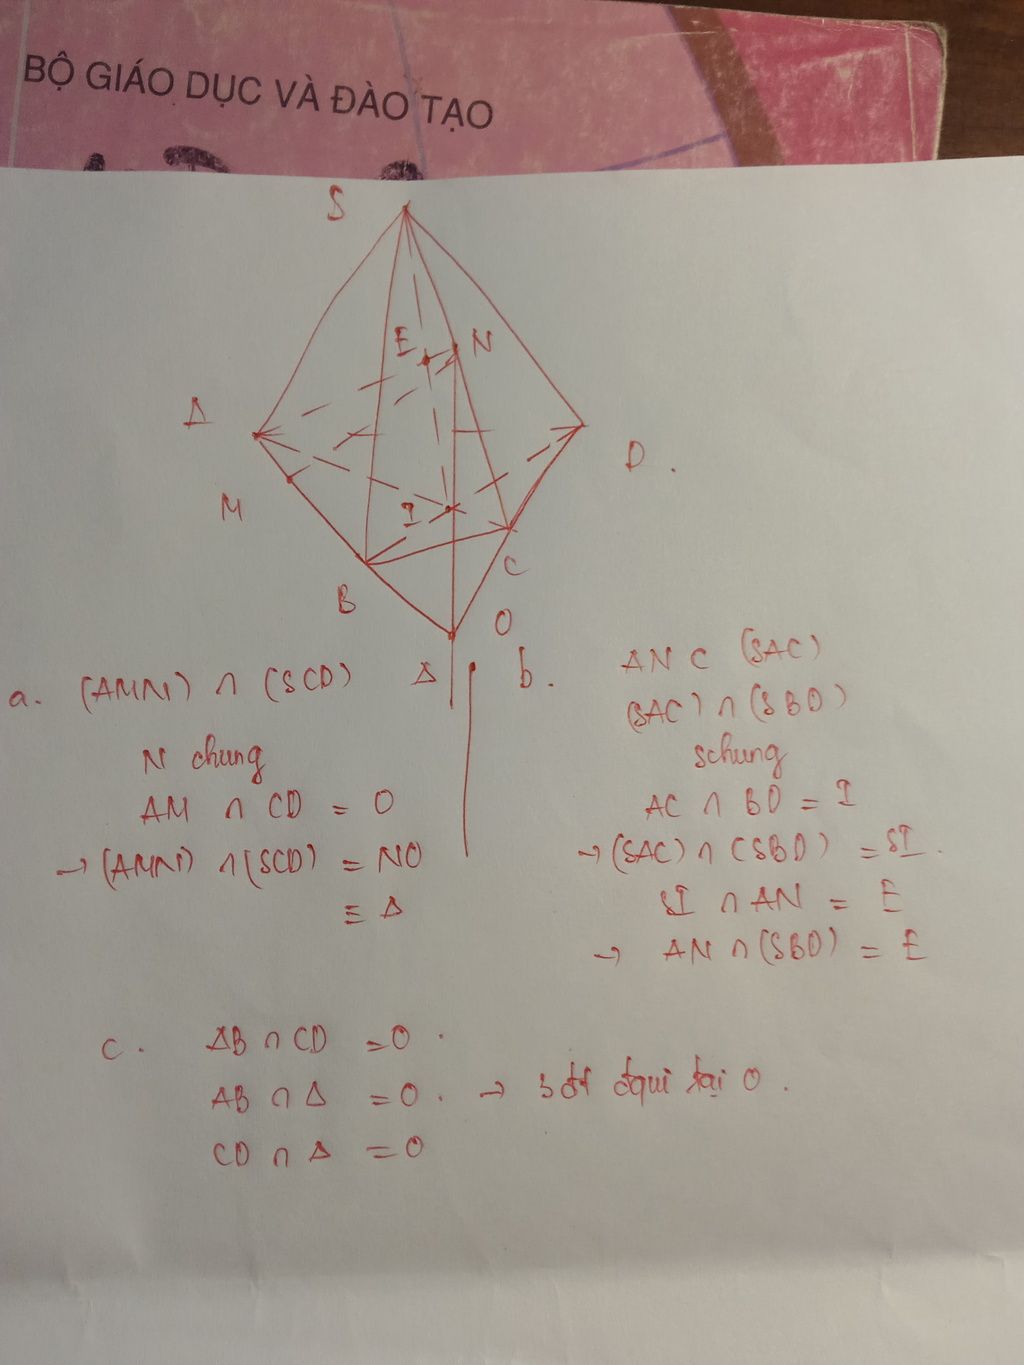 BỘ GIÁO DỤC VÀ ĐÀO TẠO
S
E N
A
D.
M
I
C
B
O
a. (AMN) ∩ (SCD) Δ
N chung
AM ∩ CD = O
→ (AMN) ∩ (SCD) = NO
≡ Δ
b. AN ⊂ (SAC)
(SAC) ∩ (SBD)
S chung
AC ∩ BD = I
→ (SAC) ∩ (SBD) = SI.
SI ∩ AN = E
→ AN ∩ (SBD) = E
c. AB ∩ CD = O.
AB ∩ Δ = O. → 3 đt đqui tại O.
CD ∩ Δ = O